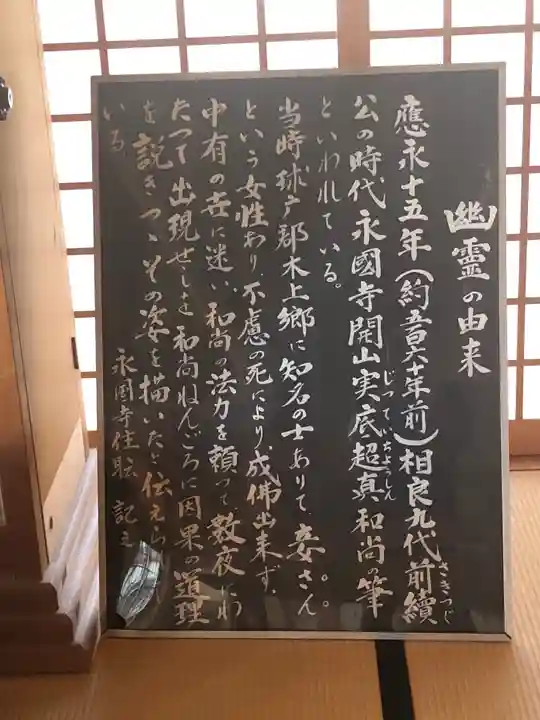 幽霊の由来
應永十五年(約五百六十年前)相良九代前續さきつぐ
公の時代永國寺開山実底超真じっていちょうしん和尚の筆
といわれている。
当時球戸郡木上郷に知名の士ありて、妾さん
という女性あり、不慮の死により、成佛出来ず、
中有の世に迷い、和尚の法力を頼って数夜にわ
たって出現せしを和尚ねんごろに因果の道理
を説きつゝその姿を描いたと伝えら
いる
永國寺住職 記之